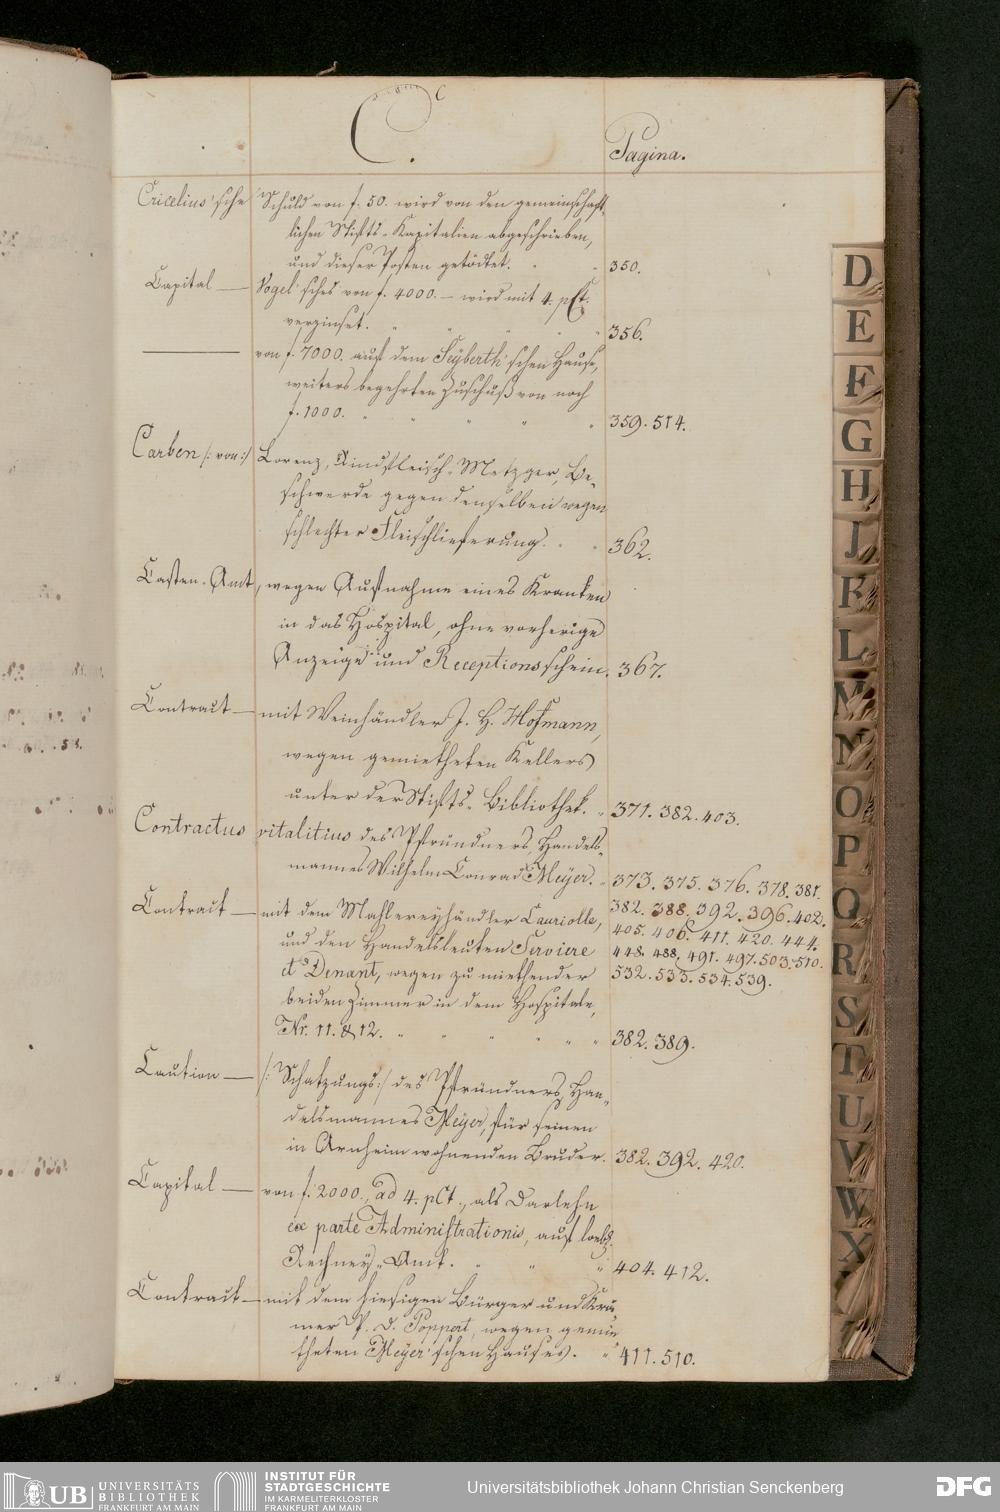 C.
Pagina.
Cricelius'sche Schuld von f. 50. wird von den gemeinschaft-
lichen Stifts-Kapitalien abgeschrieben,
und dieser Posten getödtet. 350.
Capital — Vogel'sches von f. 4000. — wird mit 4. pCt.
verzinset. 356.
— von f. 7000. auf dem Seyberth'schen Hause,
weiters begehrten Zuschuß von noch
f. 1000. 359. 514.
Carben /: von :/ Lorenz, Rindfleisch-Metzger, Be-
schwerde gegen denselben wegen
schlechter Fleischlieferung. 362.
Casten-Amt, wegen Aufnahme eines Kranken
in das Hospital, ohne vorherige
Anzeige und Receptionsschein. 367.
Contract — mit Weinhändler J. H. Hofmann,
wegen gemietheten Kellers
unter der Stifts-Bibliothek. 371. 382. 403.
Contractus vitalitius des Pfründners, Handels-
mannes Wilhelm Conrad Meyer. 373. 375. 376. 378. 381.
382. 388. 392. 396. 402.
405. 406. 411. 420. 444.
448. 488. 491. 497. 503. 510.
532. 533. 534. 539.
Contract — mit dem Mahlereyhändler Cauriolle,
und den Handelsleuten Serviere
et Denant, wegen zu miethender
beiden Zimmer in dem Hospitale,
Nr. 11. & 12. 382. 389.
Caution — /: Schatzungs :/ des Pfründners, Han-
delsmannes Meyer, für seinen
in Arnheim wohnenden Bruder. 382. 392. 420.
Capital — von f. 2000., ad 4. pCt., als Darlehn
ex parte Administrationis, auf löbl.
Rechney-Amt. 404. 412.
Contract — mit dem hiesigen Bürger und Krä-
mer P. D. Poppert, wegen gemie-
theten Meyer'schen Hauses. 411. 510.
D
E
F
G
H
J
K
L
M
N
O
P
Q
R
S
T
U
V
W
X
UB UNIVERSITÄTS
BIBLIOTHEK
FRANKFURT AM MAIN
INSTITUT FÜR
STADTGESCHICHTE
IM KARMELITERKLOSTER
FRANKFURT AM MAIN
Universitätsbibliothek Johann Christian Senckenberg
DFG